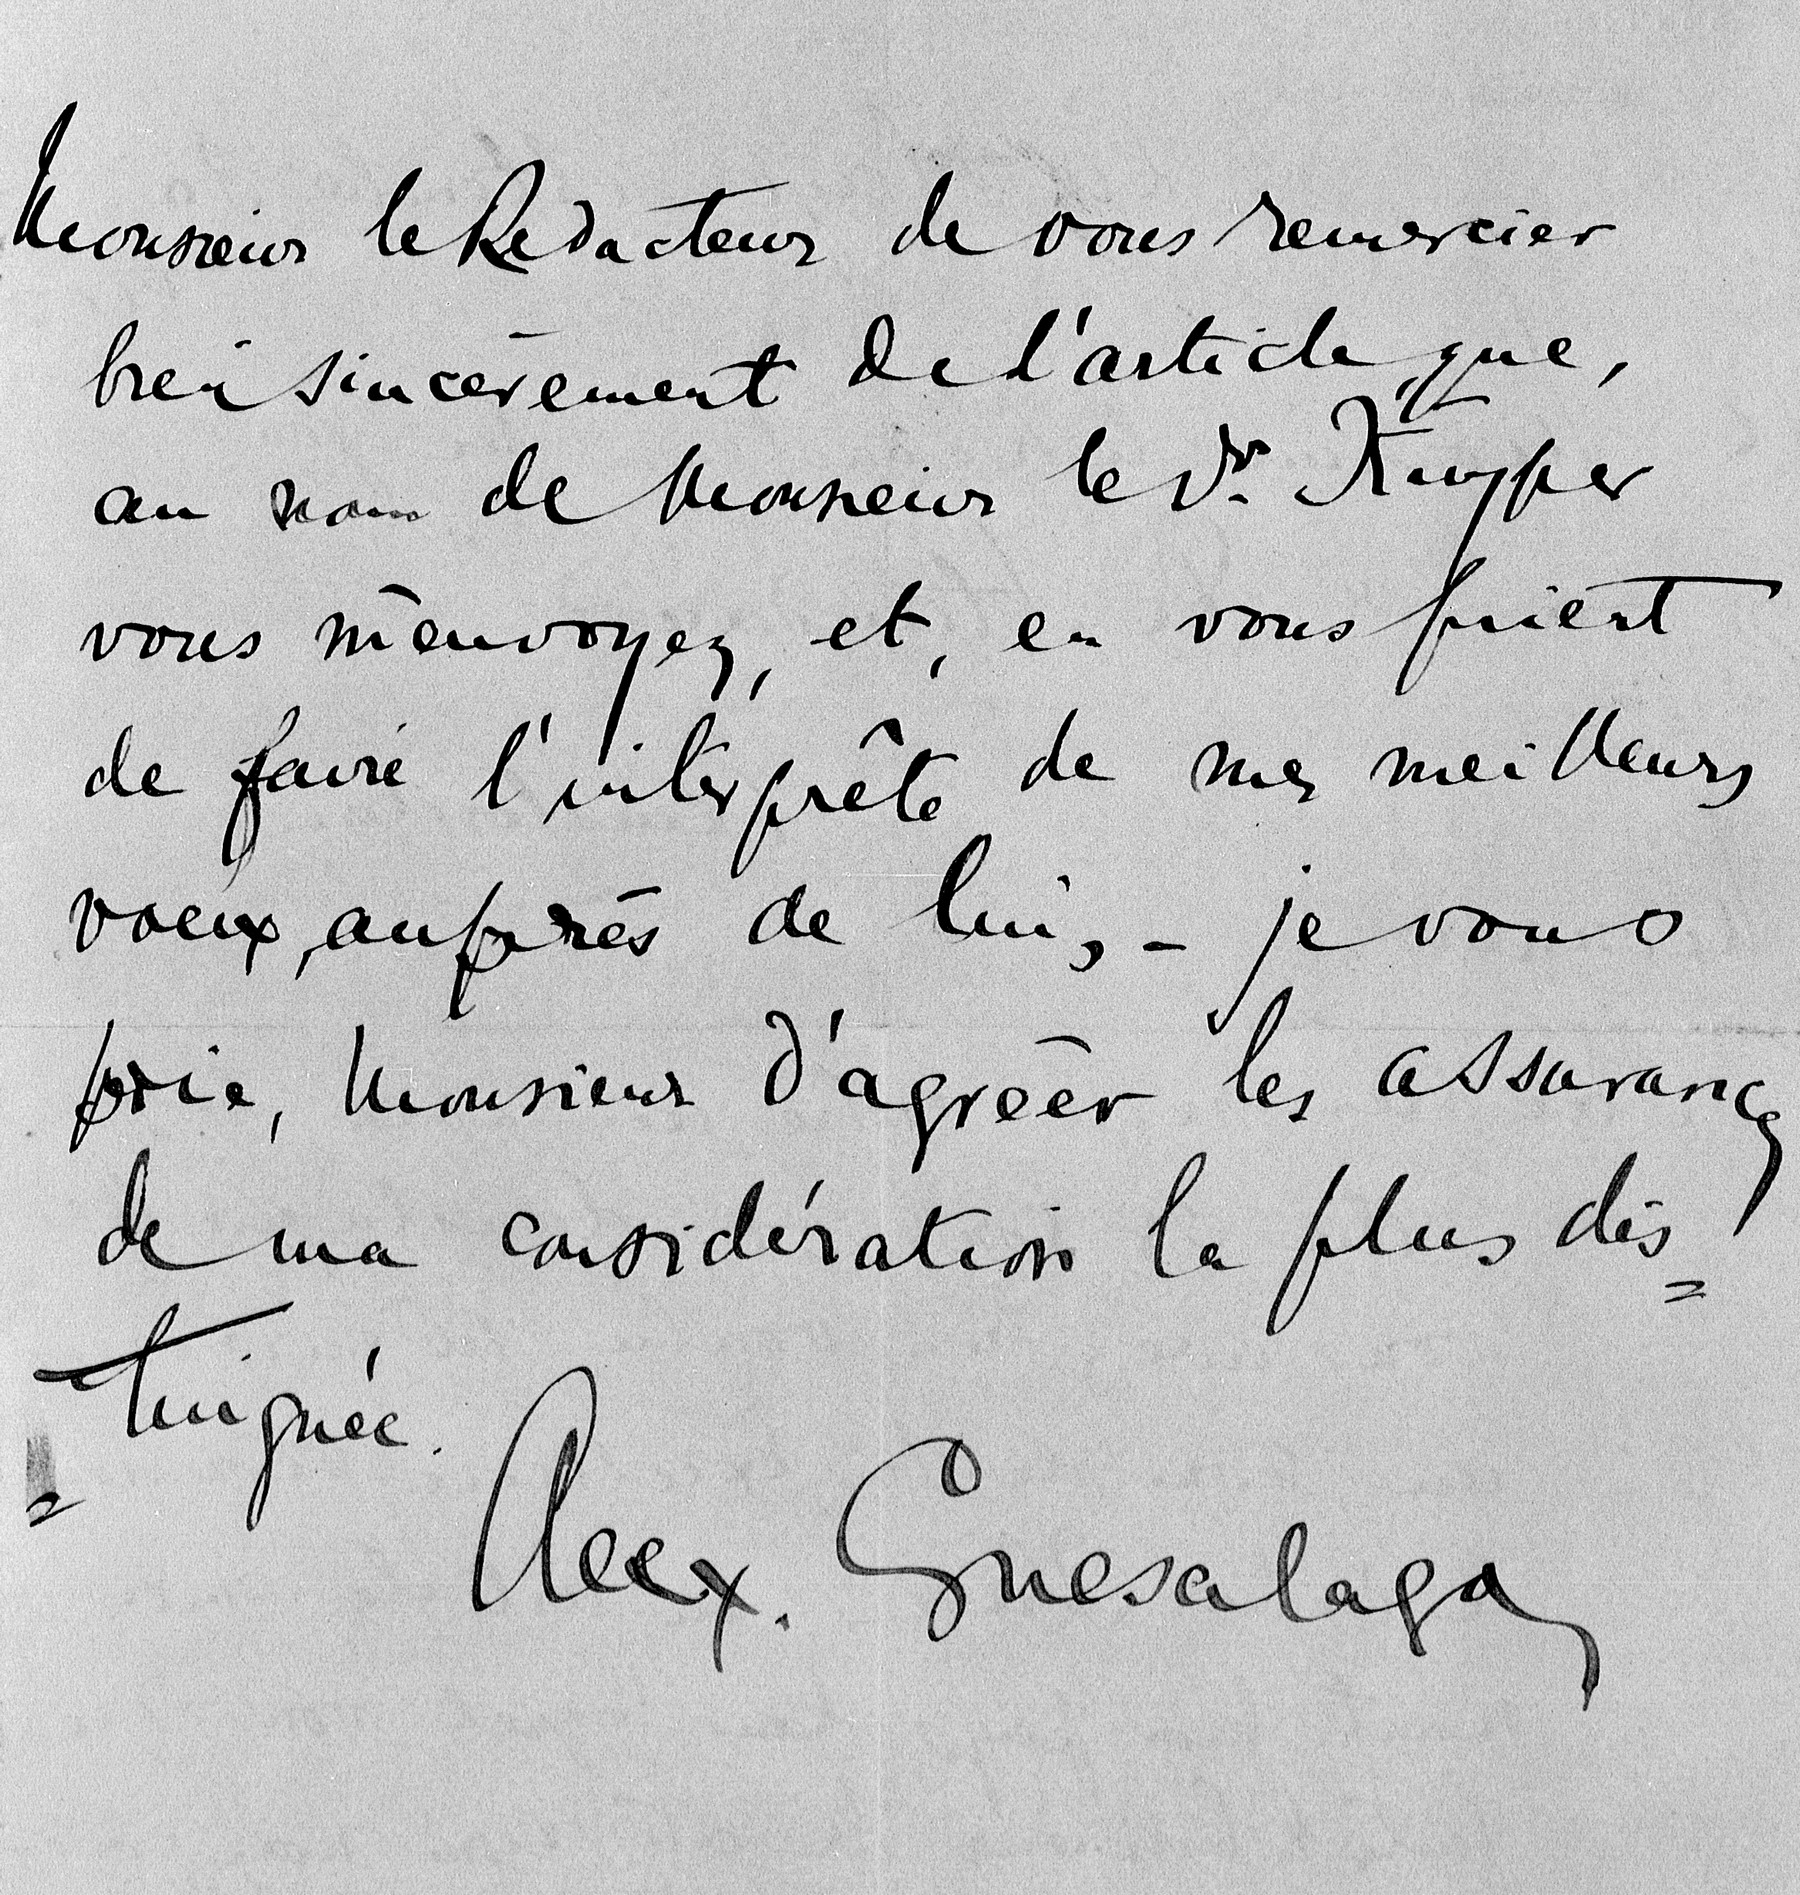 Monsieur le Redacteur de vous remercier
bien sincèrement de l'article, que,
au nom de Monsieur le Dr. Kuyper
vous m'envoyez, et, en vous priant
de faire l'interprête de mes meilleurs
voeux, auprés de lui, - je vous
prie, Monsieur d'agréer les assurances
de ma considération la plus dis=
=tinguée.
Alex. Guesalaga